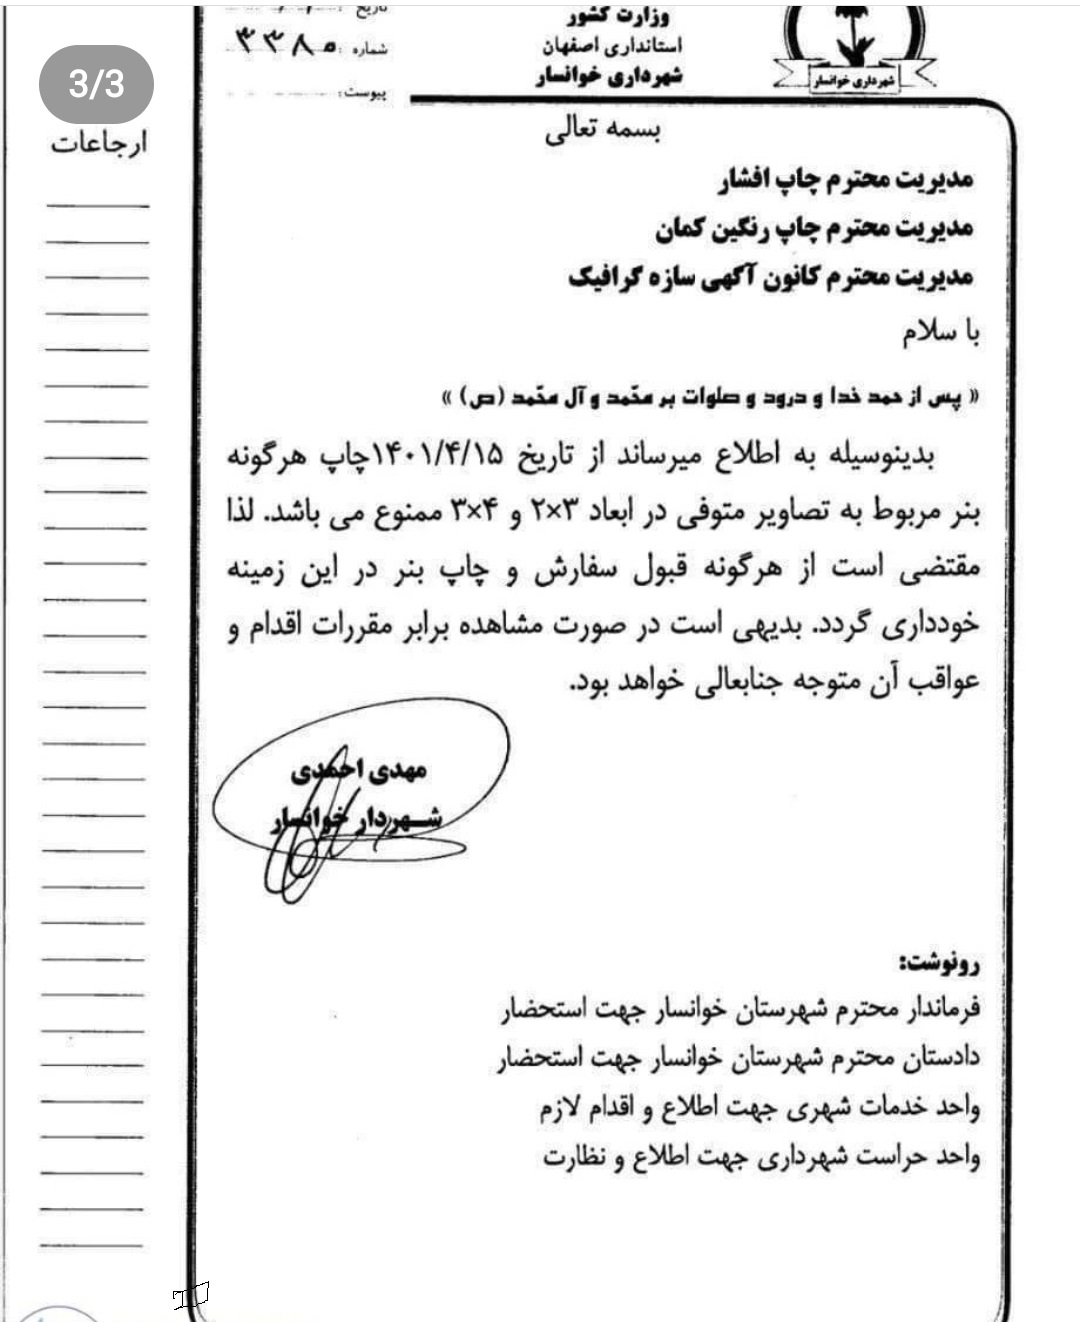 3/3
وزارت کشور
استانداری اصفهان
شهرداری خوانسار
شهرداری خوانسار
تاریخ
شماره: ۳۳۸۰
پیوست:
ارجاعات
بسمه تعالی
مدیریت محترم چاپ افشار
مدیریت محترم چاپ رنگین کمان
مدیریت محترم کانون آگهی سازه گرافیک
با سلام
« پس از حمد خدا و درود و صلوات بر محّمد و آل محّمد (ص) »
بدینوسیله به اطلاع میرساند از تاریخ ۱۴۰۱/۴/۱۵چاپ هرگونه
بنر مربوط به تصاویر متوفی در ابعاد ۳×۲ و ۴×۳ ممنوع می باشد. لذا
مقتضی است از هرگونه قبول سفارش و چاپ بنر در این زمینه
خودداری گردد. بدیهی است در صورت مشاهده برابر مقررات اقدام و
عواقب آن متوجه جنابعالی خواهد بود.
مهدی احمدی
شهردار خوانسار
رونوشت:
فرماندار محترم شهرستان خوانسار جهت استحضار
دادستان محترم شهرستان خوانسار جهت استحضار
واحد خدمات شهری جهت اطلاع و اقدام لازم
واحد حراست شهرداری جهت اطلاع و نظارت